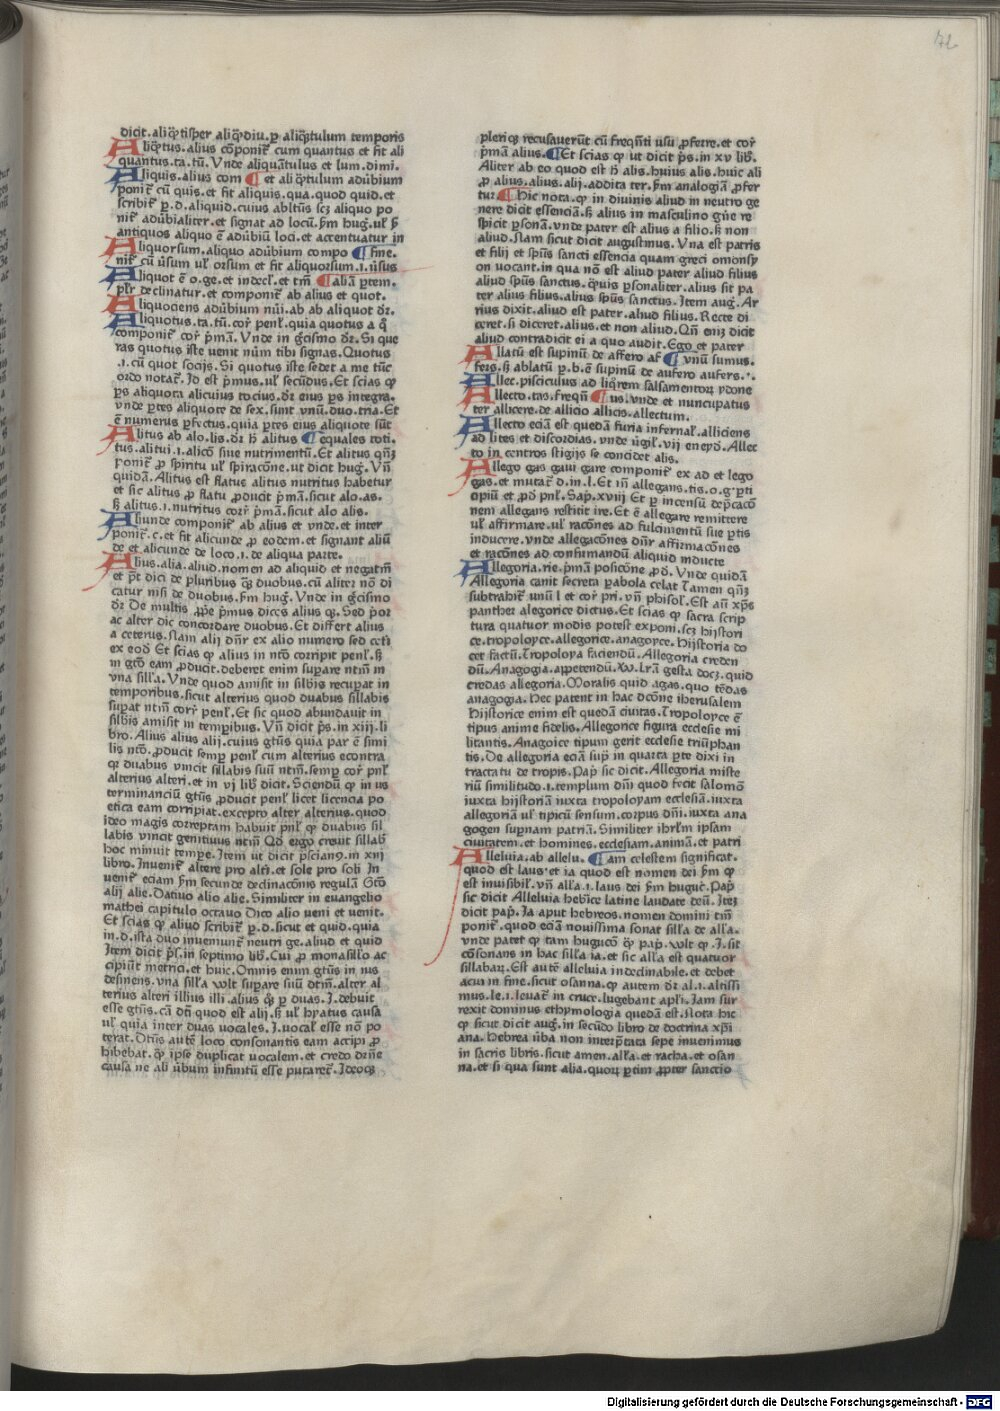 72
dicit.aliq̃tisper aliq̃diu.ꝑ aliq̃tulum temporis
Aliq̃tus.alius cõponit̃ cum quantus et fit ali
quantus.ta.tũ. Vnde aliquãtulus et lum.dimi.
Aliquis.alius com ¶ et ali q̃tulum adũbium
ponit̃ cũ quis.et fit aliquis.qua.quod quid.et
scribit̃ ꝑ.d.aliquid.cuius abltũs scꝫ aliquo po
nit̃ adũbialiter.et signat ad locũ.ẜm hug̃.ul̃ ẜ
antiquos aliquo ẽ adũbiũ loci.et accentuatur in
Aliquorsum.aliquo adũbium compo ¶ fine.
nit̃ cũ ũsum ul̃ orsum et fit aliquorsum.i.ũsus
Aliquot ẽ o.ge.et indecl̃.et tm̃ ¶ aliã ꝑtem.
pl̃r declinatur.et componit̃ ab alius et quot.
Aliquociens adũbium nũi.ab ab aliquot dr̃.
Aliquotus.ta.tũ.cor̃ penl̃.quia quotus a q̃
componit̃ cor̃ pm̃ã. Vnde in g̃cismo dr̃. Si que
ras quotus iste venit nũm tibi signas. Quotus
.i.cũ quot socijs. Si quotus iste sedet a me tũc
ordo notat̃. Id est pm̃us.ul̃ secũdus. Et scias ꝙ
ꝑs aliquota alicuius tocius.dr̃ eius ꝑs integra.
vnde ꝑtes aliquote de sex.sunt vnũ.duo.tria. Et
ẽ numerus ꝑfectus.quia ꝑtes eius aliquote sũt
Alitus ab alo.lis.dr̃ h̃ alitus ¶ equales toti.
tus.alitui.i.alicõ siue nutrimentũ. Et alitus qñꝫ
ponit̃ ꝓ spiritu ul̃ spiracõne.ut dicit hug̃. Vñ
quidã. Alitus est flatus alitus nutritus habetur
et sic alitus ꝓ flatu ꝓducit p̃mã.sicut alo.as.
ꝫ alitus.i.nutritus corr̃ p̃mã.sicut alo alis.
Aliunde componit̃ ab alius et vnde.et inter
ponit̃.c.et fit alicunde ꝓ eodem.et signant aliũ
de et alicunde de loco.i.de aliqua parte.
Alius.alia.aliud.nomen ad aliquid et negatm̃
et p̃t dici de pluribus q̃ꝫ duobus.cũ aliter nõ di
catur nisi de duobus.ẜm hug̃. Vnde in g̃cismo
dr̃ De multis ꝓp̃e p̃mus dices alius qꝫ. Sed p̃or
ac alter dic concordare duobus. Et differt alius
a ceterus. Nam alij dñr ex alio numero sed cet̃i
ex eod̃ Et scias ꝙ alius in nt̃o corripit penl̃.ꝫ
in gt̃o eam ꝓducit.deberet enim suꝑare nt̃m in
vna sill̃a. Vnde quod amisit in silbis recuꝑat in
temporibus.sicut alterius quod duabus sillabis
suꝑat nt̃m corr̃ penl̃. Et sic quod abundauit in
silbis amisit in temꝑibus. Vñ dicit p̃s.in xiij.li
bro. Alius alius alij.cuius gt̃us quia par ẽ simi
lis nt̃o.ꝓducit semꝑ penl̃ cum alterius econtra
qꝫ duabus vincit sillabis suũ nt̃m.semꝑ cor̃ pnl̃
alterius alteri.et in vj lib̃ dicit. Sciendũ ꝙ in us
terminanciũ gt̃us ꝓducit penl̃ licet licencia po
etica eam corripiat.excepto alter alterius.quod
ideo magis correptam habuit pnl̃ ꝙ duabus sil
labis vincit genitiuus nt̃m Qd̃ ergo creuit sillab̃
hoc minuit tempe. Item ut dicit p̃scian9.in xiij
libro. Inuenit̃ altere pro alt̃i.et sole pro soli In
uenit̃ eciam ẜm secunde declinacõnis regulã Gt̃o
alij alie. Datiuo alio alie. Similiter in euangelio
mathei capitulo octauo Dico alio ueni et uenit.
Et scias ꝙ aliud scribit̃ ꝑ.d.sicut et quid.quia
in.d.ista duo inuemunt̃ neutri ge.aliud et quid
Item dicit p̃s.in septimo lib̃. Cui ꝓ monasill̃o ac
cipiũt metrici.et huic. Omnis enim gt̃us in ius
desinens.vna sill̃a vult suꝑare suũ dt̃m.alter al
terius alteri illius illi.alius q̃ꝫ ꝑ duas. I.debuit
esse gt̃us.cã dt̃i quod est alij.ꝫ ul̃ hyatus causa
ul̃ quia inter duas uocales. I.uocal̃ esse nõ po
terat. Dt̃us autẽ loco consonantis eam accipi ꝓ
hibebat.q̃ ipse duplicat uocalem.et credo dr̃ne
causa ne ali ũbum infinitũ esse putaret̃. Ideoqꝫ
pleriqꝫ recusauerũt cũ freq̃nti usu ꝓferre.et cor̃
p̃mã alius.¶ Et scias ꝙ ut dicit p̃s.in xv lib̃.
Aliter ab eo quod est h̃ alis.huius alis.huic ali
ꝓ alius.alius.alij.addita ter.ẜm analogiã ꝓfer
tur ¶ Hic nota.ꝙ in diuinis aliud in neutro ge
nere dicit essenciã.ꝫ alius in masculino gñe re
spicit ꝑsonã.vnde pater est alius a filio.ꝫ non
aliud. Nam sicut dicit augustinus. Vna est patris
et filij et sp̃us sancti essencia quam greci omonsy
on uocant.in qua nõ est aliud pater aliud filius
aliud sp̃us sanctus.q̃uis ꝑsonaliter.alius sit pa
ter alius filius.alius sp̃us sanctus. Item aug̃. Ar
rius dixit.aliud est pater.aliud filius. Recte di
ceret.si diceret.alius.et non aliud. Qñ eniꝫ dicit
aliud contradicit ei a quo audit. Ego et pater
Allatũ est supinũ de affero af ¶ vnũ sumus.
fers.ꝫ ablatũ ꝑ.b.ẽ supinũ de aufero aufers.
Allec.pisciculus ad liq̃rem salsamentoꝝ ydone
Allecto.tas.freq̃n ¶ us.vnde et nuncupatus
ter allicere.de allicio allicis.allectum.
Allecto eciã est quedã furia infernal̃.alliciens
ad lites et discordias.vnde ũgil̃.vij eneyd̃. Allec
to in centros stigijs se concidet alis.
Allego gas gaui gare componit̃ ex ad et lego
gas.et mutat̃ d.in.l.Et in̄ allegans.tis.o.g.ꝑti
cipiũ et ꝓd̃ pnl̃. Sap̃.xviij Et ꝑ incensũ dep̃cacõ
nem allegans restitit ire. Et ẽ allegare remittere
ul̃ affirmare.ul̃ racõnes ad fulcimentũ sue ꝑtis
inducere.vnde allegacõnes dñr affirmacõnes
et racõnes ad confirmandũ aliquid inducte
Allegoria.rie.p̃mã posicõne ꝓd̃. Vnde quidã
Allegoria canit secreta ꝑabola celat Tamen qñꝫ
subtrahit̃ vnũ l et cor̃ pri.vñ phisol̃. Est aũ xp̃s
panther alegorice dictus. Et scias ꝙ sacra scrip
tura quatuor modis potest exponi.scꝫ hijstori
ce.tropoloyce.allegorice.anagoyce. Hijstoria do
cet factũ. Tropoloya faciendũ. Allegoria creden
dũ. Anagogia.appetendũ. Vñ. Lr̃a gesta docꝫ.quid
credas allegoria. Moralis quid agas.quo tẽdas
anagogia. Hec patent in hac dcõne iherusalem
Hijstorice enim est quedã ciuitas. Tropoloyce ẽ
tipus anime fidelis. Allegorice figura ecclesie mi
litantis. Anagoice tipum gerit ecclesie triũphan
tis. De allegoria eciã sup̃ in quarta ꝑte dixi in
tractatu de tropis. Pap̃ sic dicit. Allegoria miste
riũ similitudo.i.templum dñi quod fecit salomõ
iuxta hijstoriã iuxta tropoloyam ecclesiã.iuxta
allegoriã ul̃ tipicũ sensum.corpus dñi.iuxta ana
gogen supnam patriã. Similiter ihrl̃m ipsam
ciuitatem.et homines.ecclesiam.animã.et patri
Alleluia.ab allelu. ¶ am celestem significat.
quod est laus.et ia quod est nomen dei ẜm ꝙ
est inuisibil̃.vñ all̃a.i.laus dei ẜm huguc̃. Pap̃
sic dicit Alleluia heb̃ice latine laudate deũ. Iteꝫ
dicit pap̃. Ia aput hebreos.nomen domini tm̃
ponit̃.quod eciã nouissima sonat sill̃a de all̃a.
vnde patet ꝙ tam hugucõ q̃ pap̃.volt ꝙ.I.sit
cõsonans in hac sill̃a ia.et sic all̃a est quatuor
sillabaꝝ. Est autẽ alleluia indeclinabile.et debet
acui in fine.sicut osanna.ꝙ autem dr̃ al.i.altissi
mus.le.i.leuat̃ in cruce.lugebant apl̃i.Iam sur
rexit dominus ethymologia quedã est. Nota hic
ꝙ sicut dicit aug̃.in secũdo libro de doctrina xp̃i
ana. Hebrea ũba non interp̃tata sepe inuenimus
in sacris libris.sicut amen.all̃a.et racha.et osan
na.et si qua sunt alia.quoꝝ ꝑtim ꝓpter sanctio
Digitalisierung gefördert durch die Deutsche Forschungsgemeinschaft - DFG